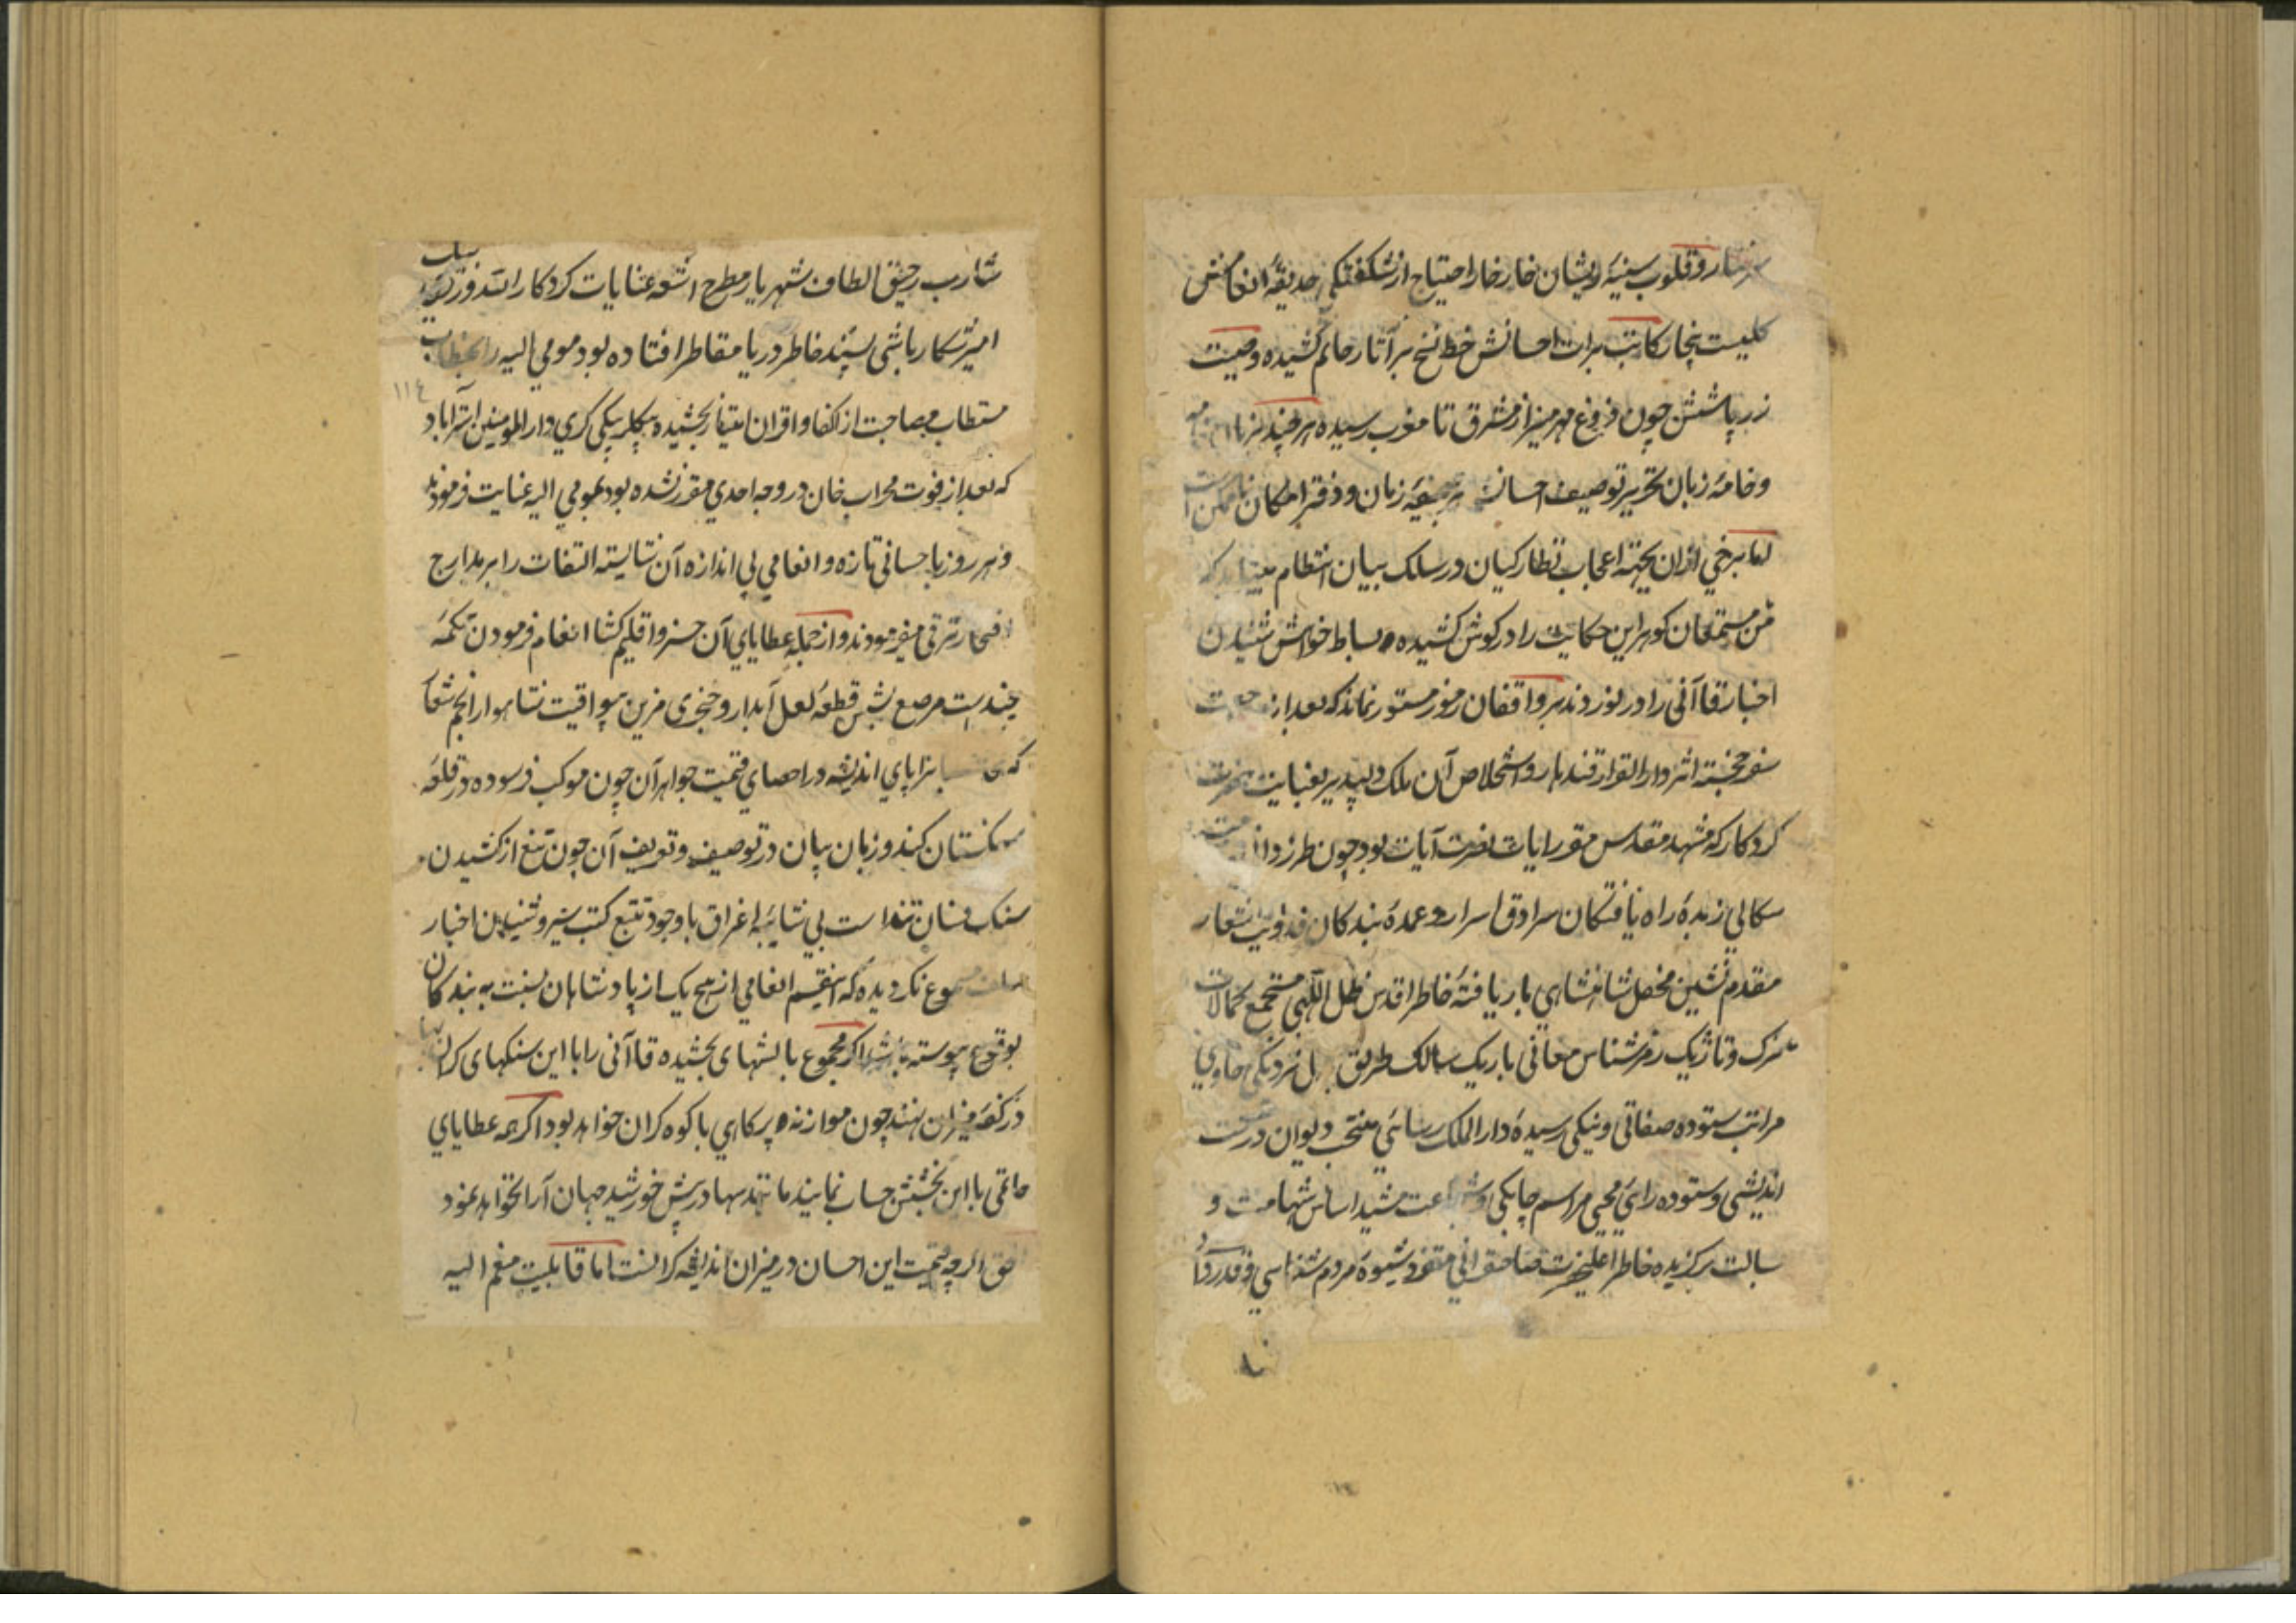 سرشار و قلوب سنیهٔ ایشان خار خار احتیاج از شکفتگی حدیقهٔ انعامش
کاتب برات احسانش خط نسخ بر آثار حاتم کشیده وصیت
زر پاشش چون فروغ مهر منیر از مشرق تا مغرب رسیده هر چند
و خامهٔ زبان تحریر توصیف احسانش زبان و دفتر امکان ناممکن است
اما برخی ازان بجهة اعجاب نظارکیان در سلک بیان انتظام مییابد که
مستمعان کوهر این حکایت را در کوش کشیده بساط خواهش شنیدن
اخبار قاآنی را در نوردند بر واقفان رموز مستور نماند که بعد از
سفر خجسته اثر دار القرار قندهار و استخلاص آن ملک دلپذیر بعنایت حضرت
کردکار که مشهد مقدس مقر رایات نصرت آیات بود چون طرز دانی
سکالی زبدهٔ راه یافتکان سرادق اسرار و عمدهٔ بندکان فدویت شعار
مقدم نشین محفل شاهنشاهی بار یافتهٔ خاطر اقدس ظل اللهی مستجمع کمالات
ترک و تاژیک رمز شناس معانی باریک سالک طریق نزدیکی حاوی
مراتب ستوده صفاتی و نیکی رسیدهٔ دار الملک رسائی منتخب دیوان درست
اندیشی و ستوده رایی محیی مراسم چابکی و شجاعت مشید اساس شهامت و
بسالت برکزیده خاطر اعلیحضرت صاحبقرانی متفرد شیوهٔ مردم شناسی و قدردانی
شارب رحیق الطاف شهریار مطرح اشعهٔ عنایات کردکار
امیر شکار باشی پسند خاطر دریا مقاطر افتاده بود مومی الیه را بخطاب
مستطاب مصاحبت از اکفا و اقران امتیاز بخشیده بیکلر بیکی کری دار المومنین استراباد
که بعد از فوت محراب خان در وجه احدی مقرر نشده بود بمومی الیه عنایت فرمودند
و هر روز باحسانی تازه و انعامی بی اندازه آن شایسته التفات را بر مدارج
افتخار ترقی میفرمودند و از جمله عطایای آن خسرو اقلیم کشا انعام فرمودن تکمهٔ
چند است مرصع بشش قطعه لعل آبدار و خنجری مزین بیواقیت شاهوار انجم شعاع
که پای اندیشه در احصای قیمت جواهر آن چون موکب فرسوده در قلعه
سنکستان کند و زبان بیان در توصیف و تعریف آن چون تیغ از کشیدن
سنک فسان تند است بی شایبهٔ اغراق با وجود تتبع کتب سیر و شنیدن اخبار
مسموع نکردیده که اینقسم انعامی از هیچ یک از پادشاهان نسبت به بندکان
بوقوع پیوسته باشد اکر مجموع بالشهای بخشیده قاآنی را با این سنکهای کران بها
در کفهٔ میزان نهند چون موازنه پر کاهی با کوه کران خواهد بود اکر همه عطایای
حاتمی با این بخشش حساب نمایند مانند سها در پیش خورشید جهان آرا نخواهد نمود
حق اکرچه قیمت این احسان در میزان اندیشه کرانست اما قابلیت مغم الیه
١١٤